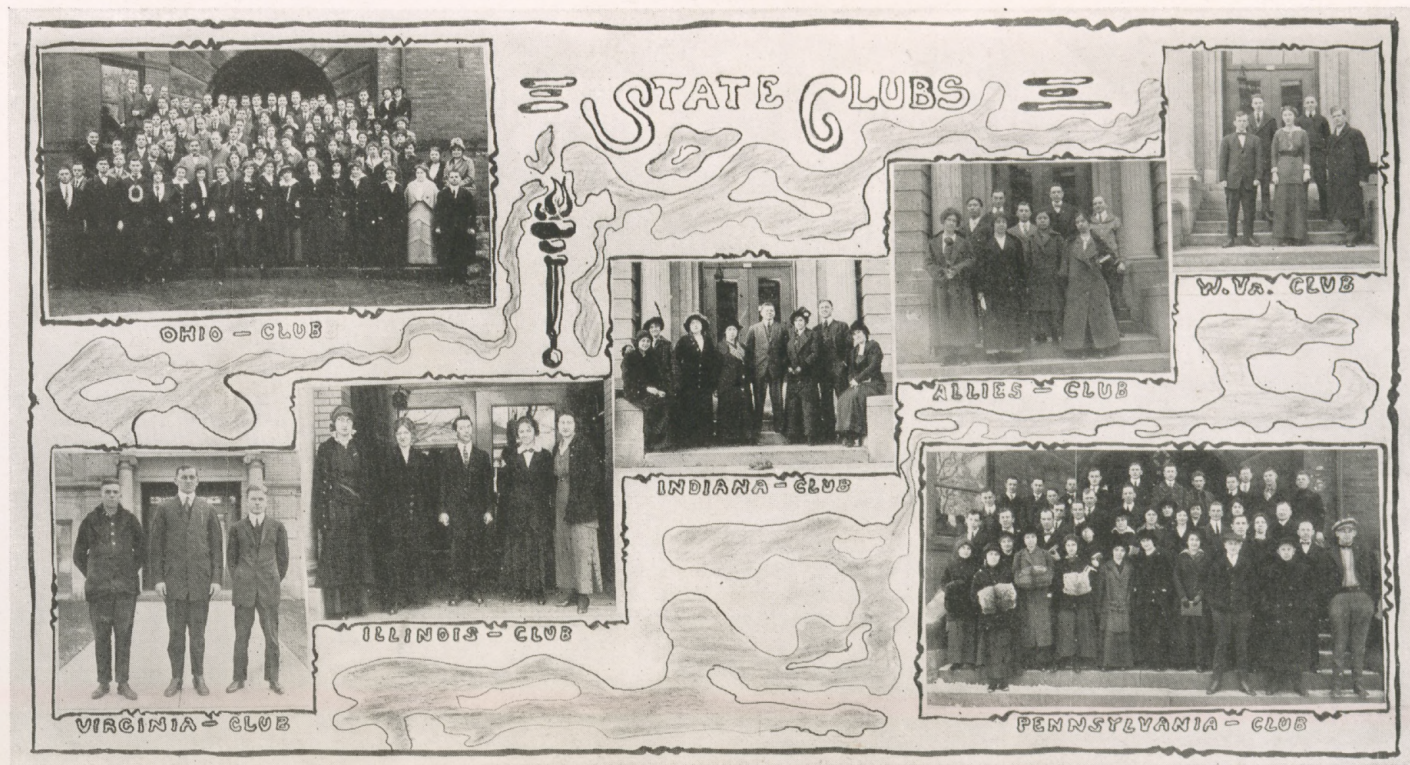 STATE CLUBS
OHIO - CLUB
W. VA. CLUB
ALLIES - CLUB
INDIANA - CLUB
ILLINOIS - CLUB
VIRGINIA - CLUB
PENNSYLVANIA - CLUB